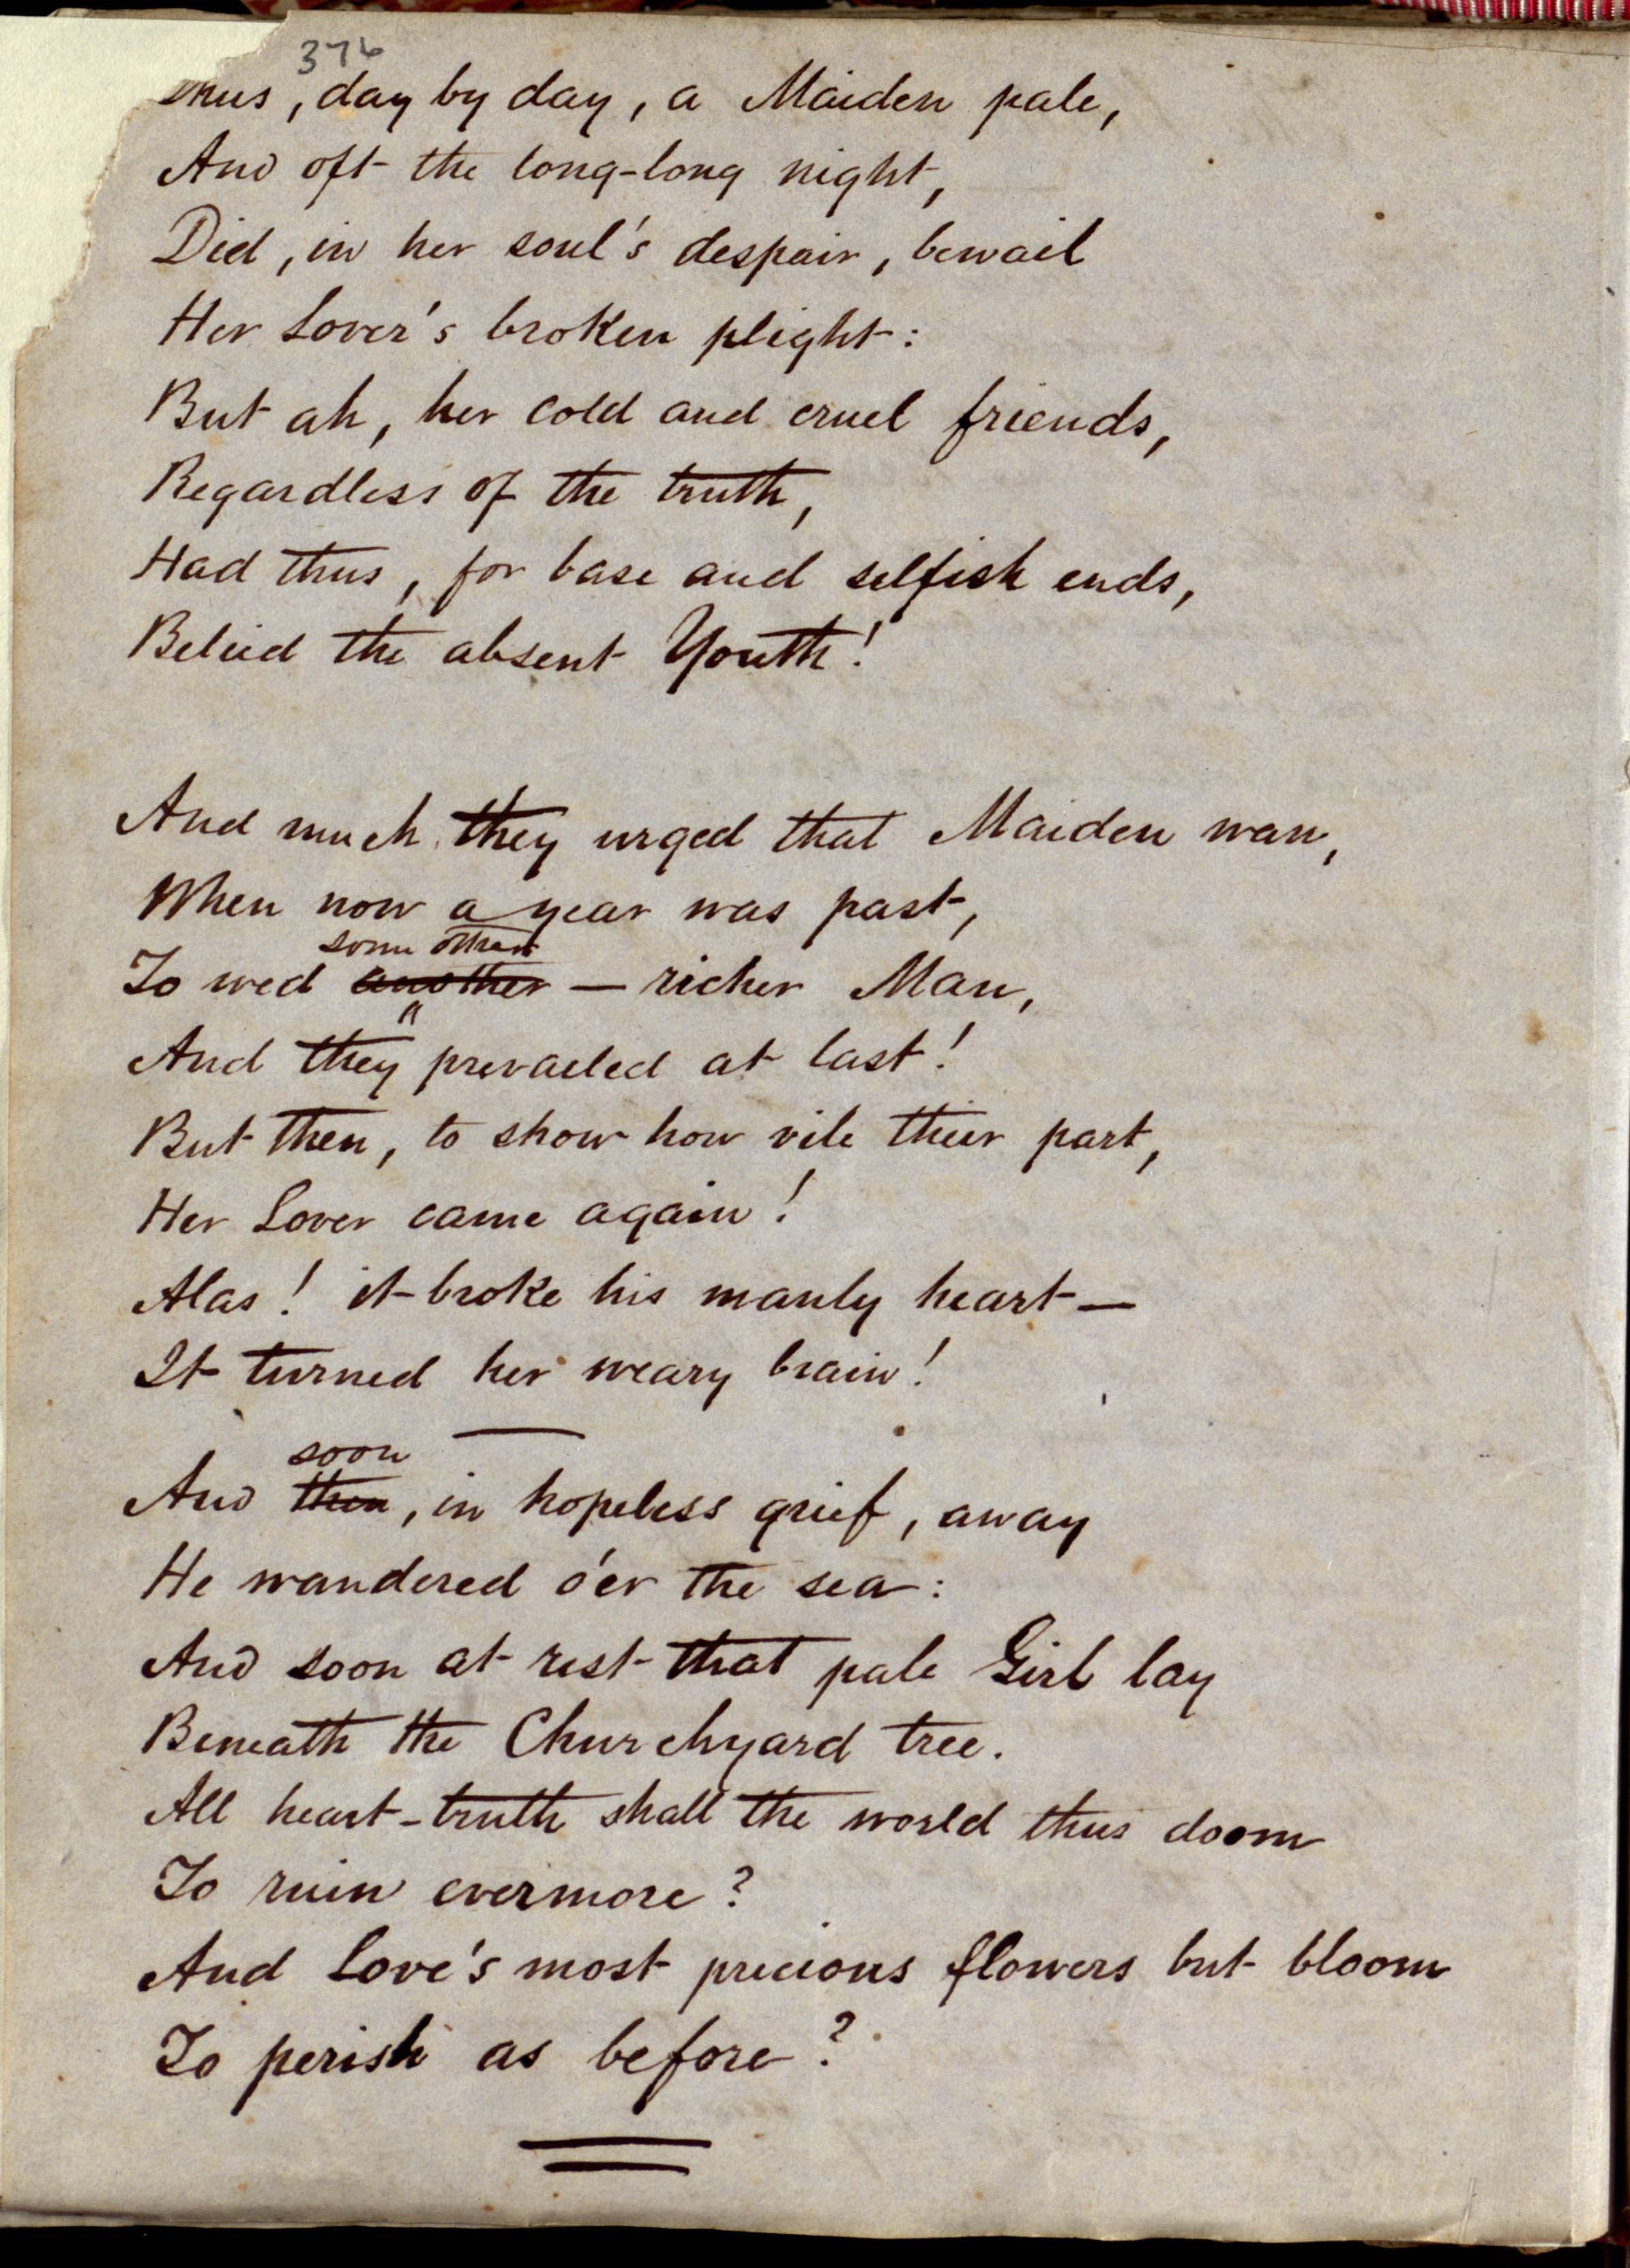 376
Thus, day by day, a Maiden pale,
And oft the long-long night,
Did, in her soul's despair, bewail
Her Lover's broken plight:
But ah, her cold and cruel friends,
Regardless of the truth,
Had thus, for base and selfish ends,
Belied the absent Youth!
And much they urged that Maiden wan,
When now a year was past,
some other
To wed another — richer Man,
And they prevailed at last!
But then, to show how vile their part,
Her Lover came again!
Alas! it broke his manly heart —
It turned her weary brain!
soon
And then, in hopeless grief, away
He wandered o'er the sea:
And soon at rest that pale Girl lay
Beneath the Churchyard tree.
All heart-truth shall the world thus doom
To ruin evermore?
And Love's most precious flowers but bloom
To perish as before?